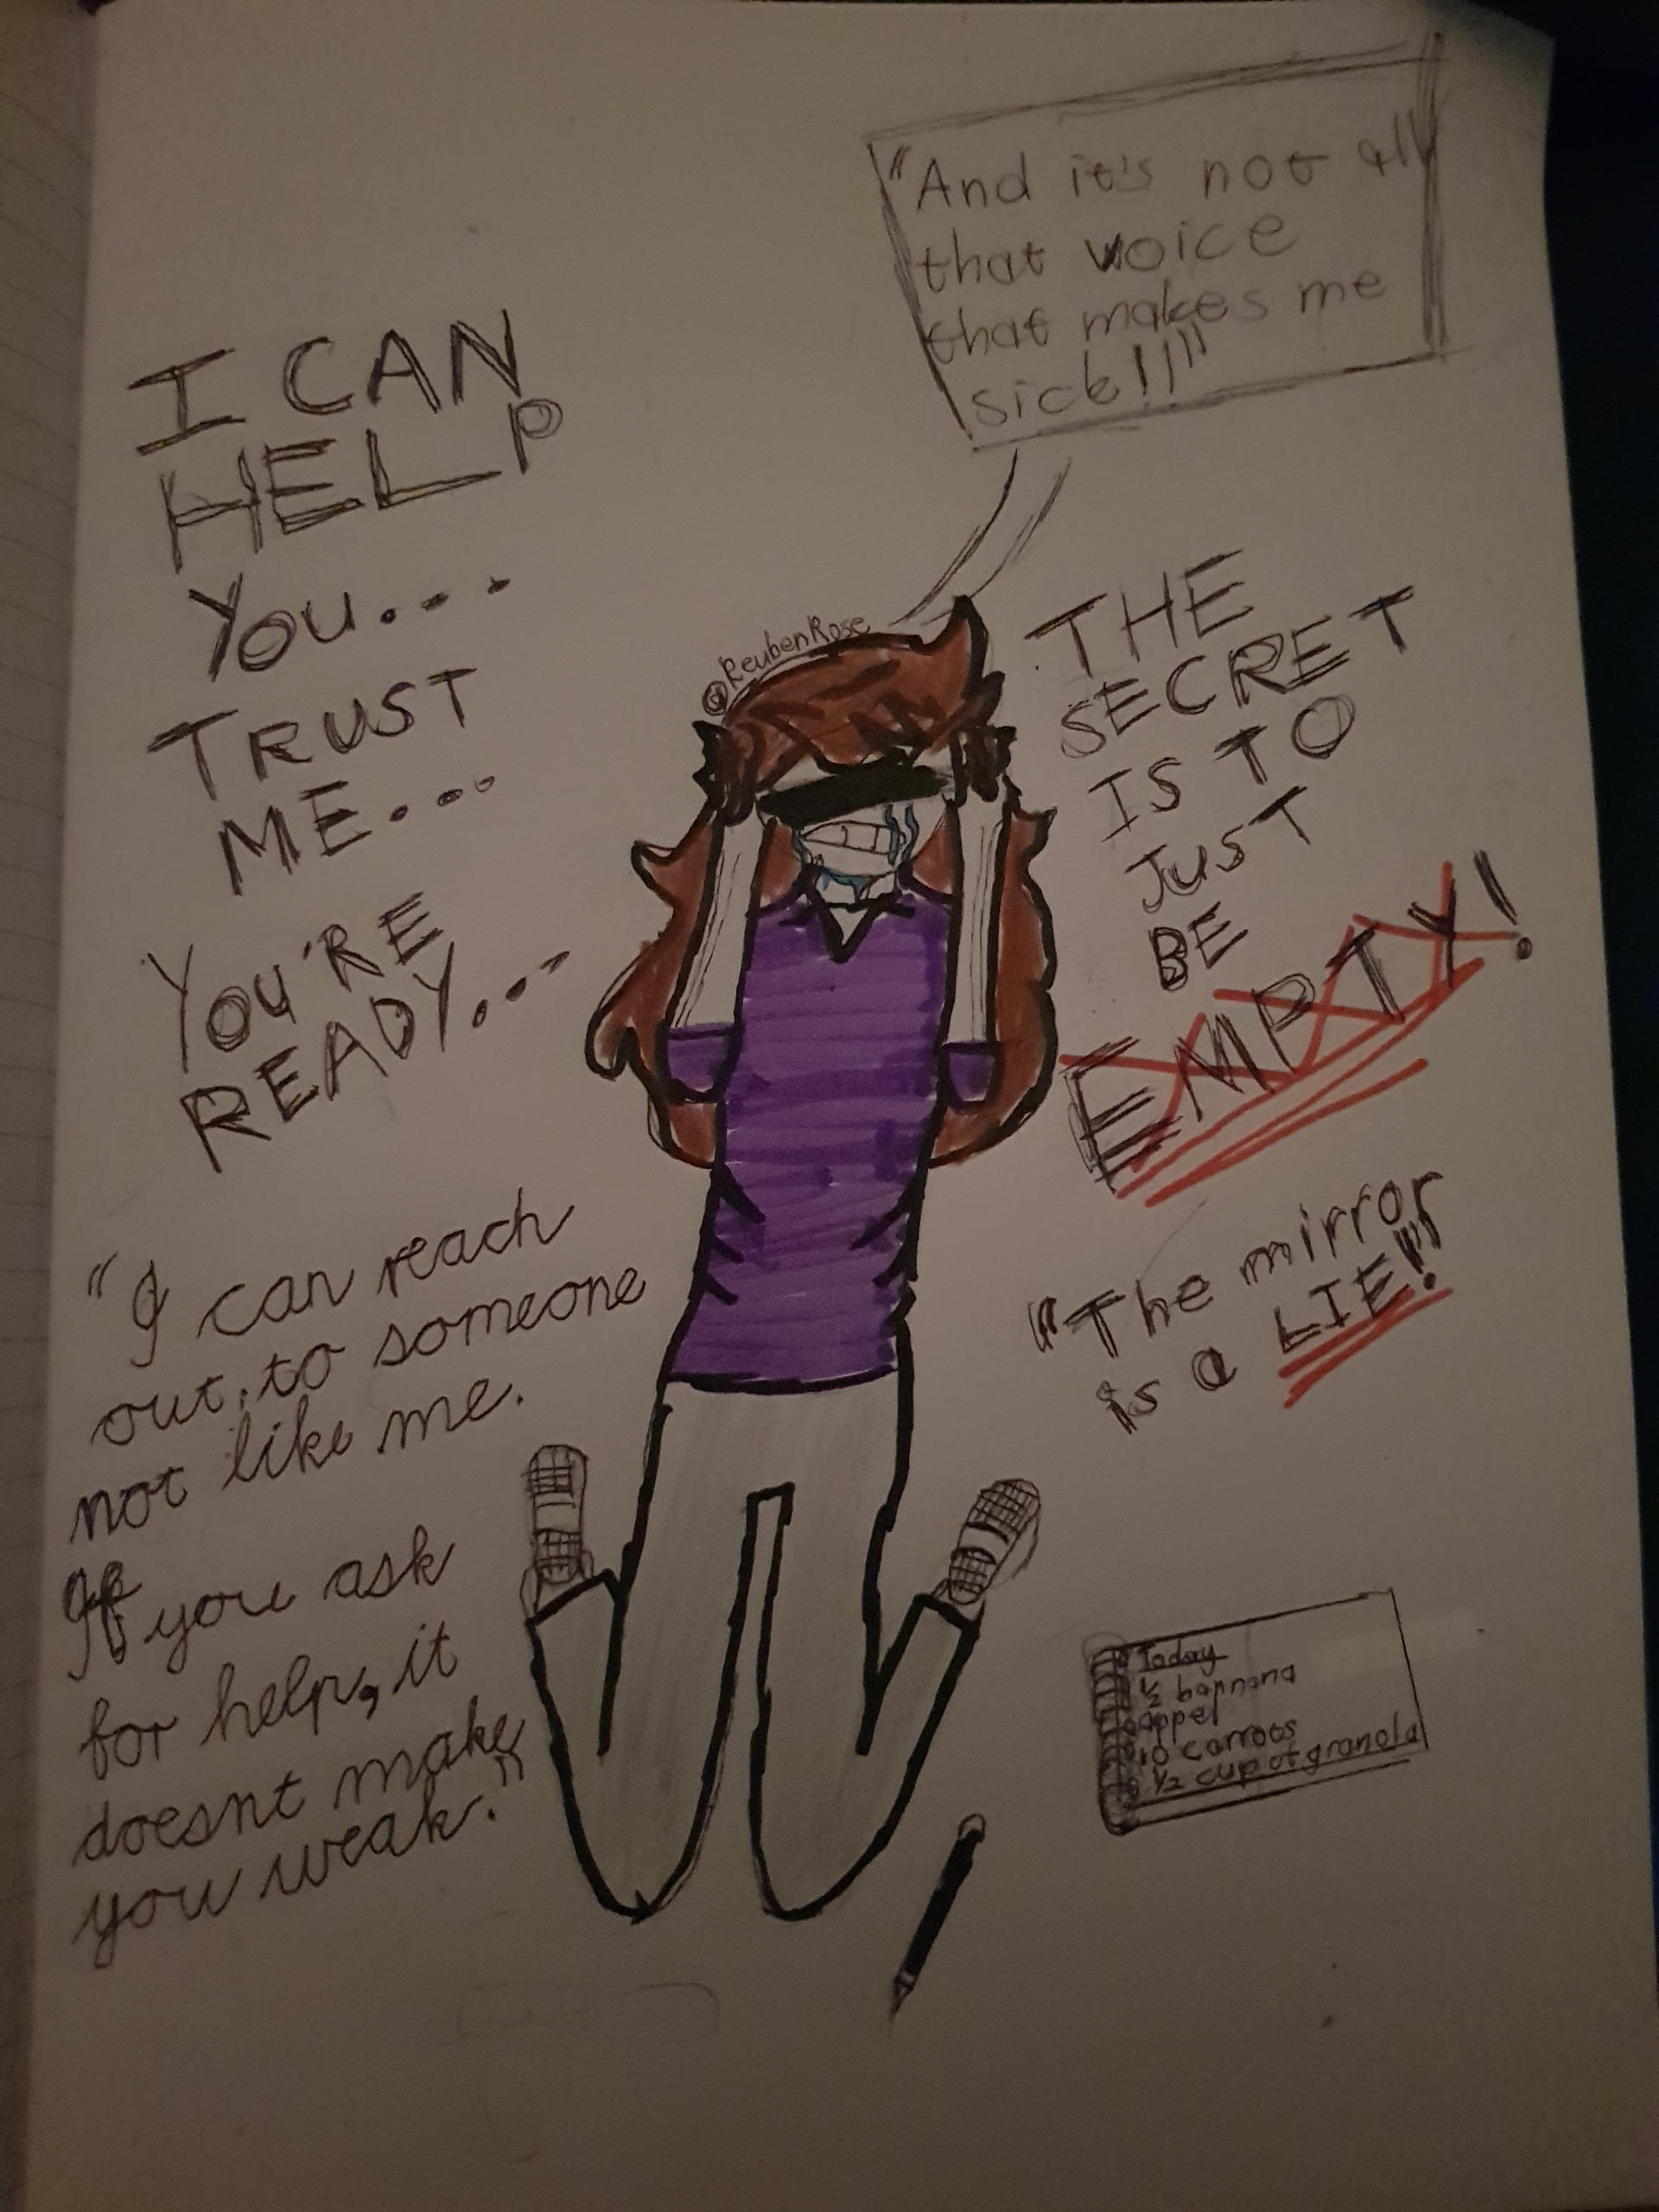 "And it's not all
that voice
that makes me
sick!!"
I CAN
HELP
YOU...
TRUST
ME...
YOU'RE
READY...
@ReubenRose
THE
SECRET
IS TO
JUST
BE
EMPTY!
"The mirror
is a LIE!"
"I can reach
out, to someone
not like me.
If you ask
for help, it
doesnt make
you weak."
Today
1/2 bannana
appel
10 carrots
1/2 cup of granola